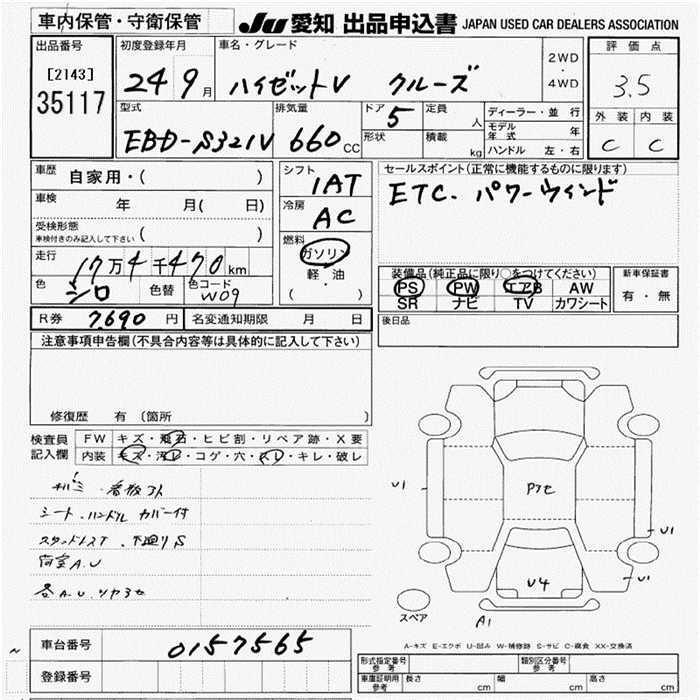 車内保管・守衛保管
JU 愛知 出品申込書 JAPAN USED CAR DEALERS ASSOCIATION
出品番号
[2143]
35117
初度登録年月
24 9 月
車名・グレード
ハイゼットV クルーズ
2WD
・
4WD
評価点
3.5
外装 内装
C C
型式
EBD-S321V
排気量
660 CC
ドア 5
形状
定員 人
積載 kg
ディーラー・並行
モデル年式 年
ハンドル 左・右
車歴
自家用・( )
車検 年 月( 日)
受検形態
車検付きのみ記入して下さい ( )
走行
17万4千470km
色 シロ
色替
色コード W09
シフト
IAT
冷房
AC
燃料
ガソリン
軽・油
( )
セールスポイント(正常に機能するものに限ります)
ETC. パワーウィンド
装備品(純正品に限り○をつけてください)
PS PW エアB AW
SR ナビ TV カワシート
新車保証書
有・無
R券 7,690 円 名変通知期限 月 日
後日品
注意事項申告欄(不具合内容等は具体的に記入して下さい)
修復歴 有(箇所 )
検査員
記入欄
FW キズ・飛石・ヒビ割・リペア跡・X要
内装 キズ・汚レ・コゲ・穴・スレ・キレ・破レ
シート、ハンドル カバー付
下廻りS
荷室A.U
各A.U.
U1
Pクセ
U1
U1
U4
A1
スペア
A-キズ E-エクボ U-凹み W-補修跡 S-サビ C-腐食 XX-交換済
車台番号 0157565
登録番号
形式指定番号
参考
類別区分番号
参考
車庫証明用
参考
長さ cm 幅 cm 高さ cm